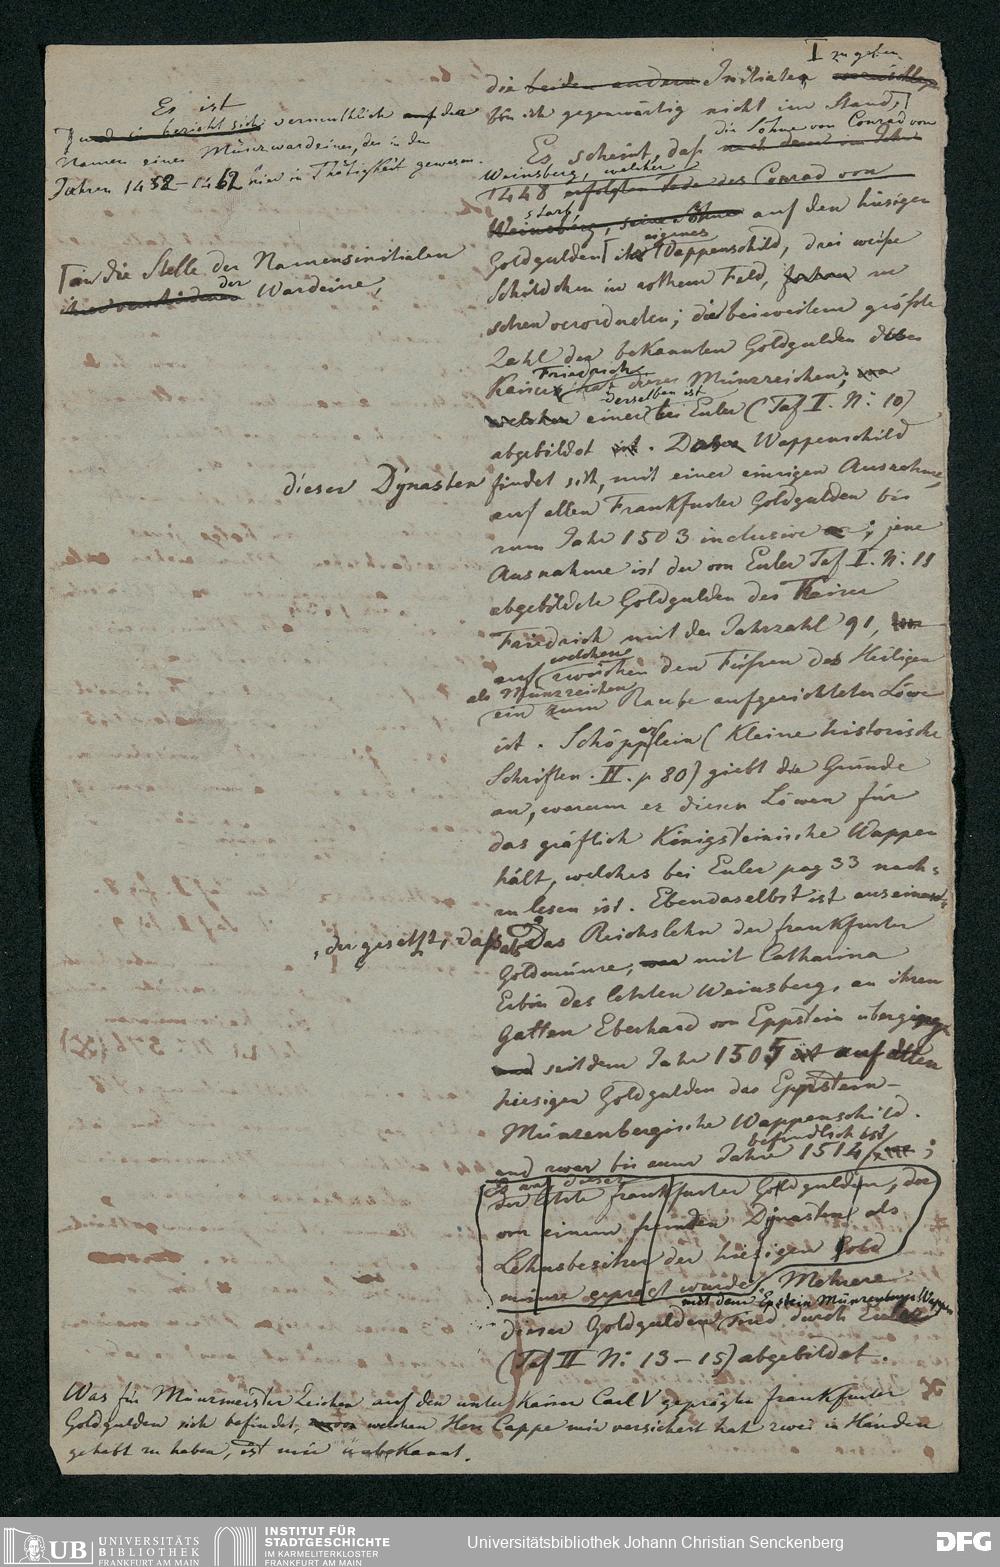 I zu geben
die beiden andern Initialen
bin ich gegenwärtig nicht im Stand,
Es ist
und es bezieht sich vermuthlich auf den
Namen eines Münzwardeines, der in den
Jahren 1458–1462 hier in Thätigkeit gewesen.
die Söhne von Conrad von
Es scheint, daß nach dem im Jahr
Weinsberg, welcher
1448 erfolgten Tode des Conrad von
starb
Weinsberg, seine Söhne auf den hiesigen
an die Stelle der Namensinitialen
der Wardeine,
eigenes
Goldgulden ihr Wappenschild, drei weiße
Schildchen in rothem Feld,
verordneten; die bei weitem größte
Zahl der bekannten Goldgulden des
Friedrich
Kaiser hat dieses Münzzeichen;
derselben ist
welchen einer bei Euler (Taf II. N: 10)
abgebildet ist. Wappenschild
dieser Dynasten
findet sich, mit einer einzigen Ausnahme,
auf allen Frankfurter Goldgulden bis
zum Jahr 1503 inclusive; jene
Ausnahme ist der von Euler Taf II. N: 11
abgebildete Goldgulden des Kaiser
Friedrich mit der Jahrzahl 91,
welchem
auf zwischen den Füßen des Heiligen
als Münzzeichen
ein zum Raube aufgerichteter Löwe
ist. Schöpflein (Kleine historische
Schriften. II. p 80) giebt die Gründe
an, warum er diesen Löwen für
das gräflich Königsteinische Wappen
hält, welches bei Euler pag 33 nach=
zulesen ist. Ebendaselbst ist auseinand=
der gesetzt, daß
als das Reichslehn der frankfurter
Goldmünze, mit Catharina
Erbin des letzten Weinsberg, an ihren
Gatten Eberhard von Eppstein überging,
und seit dem Jahr 1505 ist auf allen
hiesigen Goldgulden das Eppstein–
Münzenbergische Wappenschild.
befindlich ist
und zwar bis zum Jahre 1514;
Es war dieses
der letzte frankfurter Goldgulden, der
von einem fremden Dynasten als
Lehnsbesitzer der hiesigen Gold
münze geprägt wurde. Mehrere
mit dem Epstein Münzenberger Wappen
dieser Goldgulden sind durch Euler
(Taf II N: 13–15) abgebildet.
Was für Münzmeister Zeichen auf den unter Kaiser Carl V geprägten frankfurter
Goldgulden sich befindet, von welchen Herr Cappe mir versichert hat zwei in Händen
gehabt zu haben, ist mir unbekannt.
UB UNIVERSITÄTS
BIBLIOTHEK
FRANKFURT AM MAIN
INSTITUT FÜR
STADTGESCHICHTE
IM KARMELITERKLOSTER
FRANKFURT AM MAIN
Universitätsbibliothek Johann Christian Senckenberg
DFG